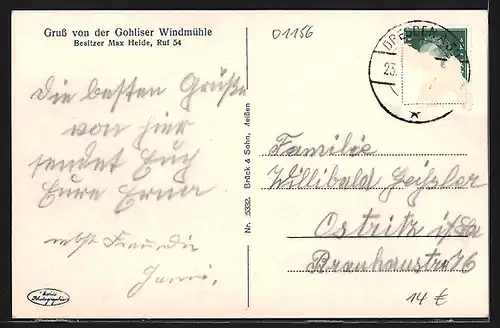 Gruß von der Gohliser Windmühle
Besitzer Max Heide, Ruf 54
01156
DRESDEN A
23.
Die besten Grüße
von hier
sendet Euch
Eure Erna
nebst Freundin
Nr. 3332. Brück & Sohn, Meißen
Familie
Willibald Geißler
Ostritz i/Sa
Brauhausstr 76
14 €